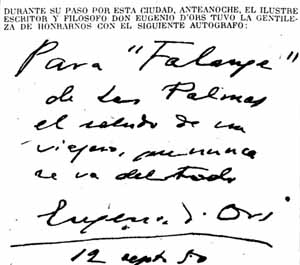 DURANTE SU PASO POR ESTA CIUDAD, ANTEANOCHE, EL ILUSTRE
ESCRITOR Y FILOSOFO DON EUGENIO D'ORS TUVO LA GENTILE-
ZA DE HONRARNOS CON EL SIGUIENTE AUTOGRAFO:
Para "Falange"
de Las Palmas
el saludo de un
viajero, que nunca
se va del todo
Eugenio d'Ors
12 sept 50